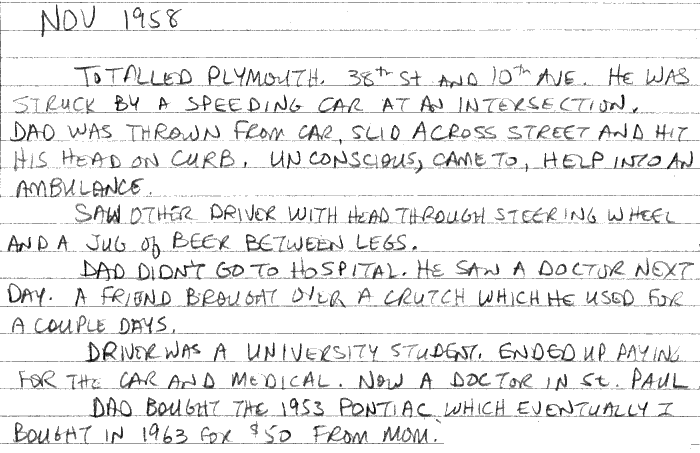 NOV 1958
TOTALLED PLYMOUTH. 38th St AND 10th AVE. HE WAS
STRUCK BY A SPEEDING CAR AT AN INTERSECTION.
DAD WAS THROWN FROM CAR, SLID ACROSS STREET AND HIT
HIS HEAD ON CURB. UNCONSCIOUS, CAME TO, HELP INTO AN
AMBULANCE.
SAW OTHER DRIVER WITH HEAD THROUGH STEERING WHEEL
AND A JUG of BEER BETWEEN LEGS.
DAD DIDN'T GO TO HOSPITAL. HE SAW A DOCTOR NEXT
DAY. A FRIEND BROUGHT OVER A CRUTCH WHICH HE USED FOR
A COUPLE DAYS.
DRIVER WAS A UNIVERSITY STUDENT. ENDED UP PAYING
FOR THE CAR AND MEDICAL. NOW A DOCTOR IN St. PAUL
DAD BOUGHT THE 1953 PONTIAC WHICH EVENTUALLY I
BOUGHT IN 1963 FOR $50 FROM MOM.